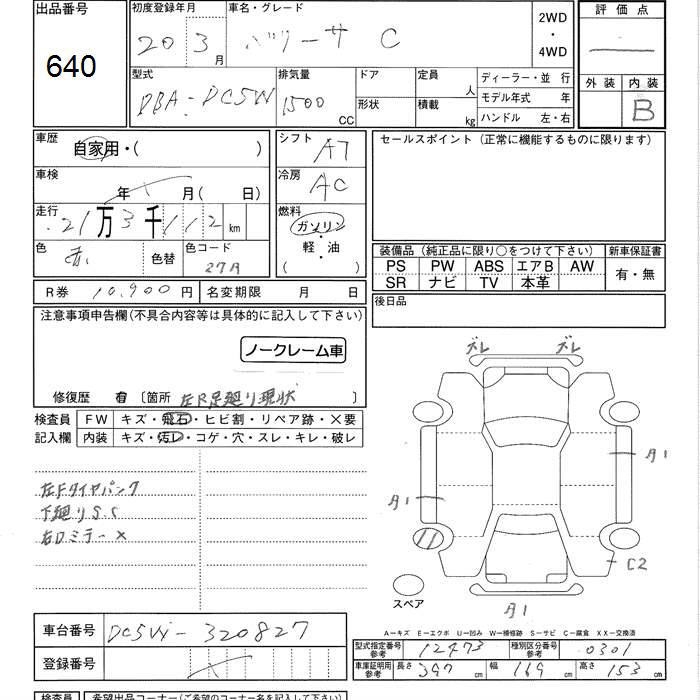 出品番号
640
初度登録年月
20 3月
車名・グレード
パッソーサ C
2WD
・
4WD
評価点
外装 内装
B
型式
DBA-DC5W
排気量
1500 CC
ドア
形状
定員 人
積載 kg
ディーラー・並 行
モデル年式 年
ハンドル 左・右
車歴
自家用・( )
車検
年 月(日)
走行
21万3千112km
色 赤 色替
色コード
27A
シフト
AT
冷房
AC
燃料
ガソリン
・
軽・油
( )
セールスポイント(正常に機能するものに限ります)
装備品(純正品に限り○をつけて下さい)
PS PW ABS エアB AW
SR ナビ TV 本革
新車保証書
有・無
後日品
R券 10,900円 名変期限 月 日
注意事項申告欄(不具合内容等は具体的に記入して下さい)
ノークレーム車
修復歴 有 〔箇所 左R足廻り現状 〕
検査員
記入欄
FW キズ・飛石・ヒビ割・リペア跡・X要
内装 キズ・汚レ・コゲ・穴・スレ・キレ・破レ
左Fタイヤパンク
下廻りS.S
右Dミラー×
ズレ ズレ
A1
A1
C2
A1
スペア
A-キズ E-エクボ U-凹み W-補修跡 S-サビ C-腐食 XX-交換済
車台番号 DC5W-320827
登録番号
型式指定番号
参考
12473
種別区分番号
参考
0301
車庫証明用
参考
長さ 397 cm 幅 169 cm 高さ 153 cm
検査員 希望出品コーナー(ご希望のコーナー名を記入して下さい)